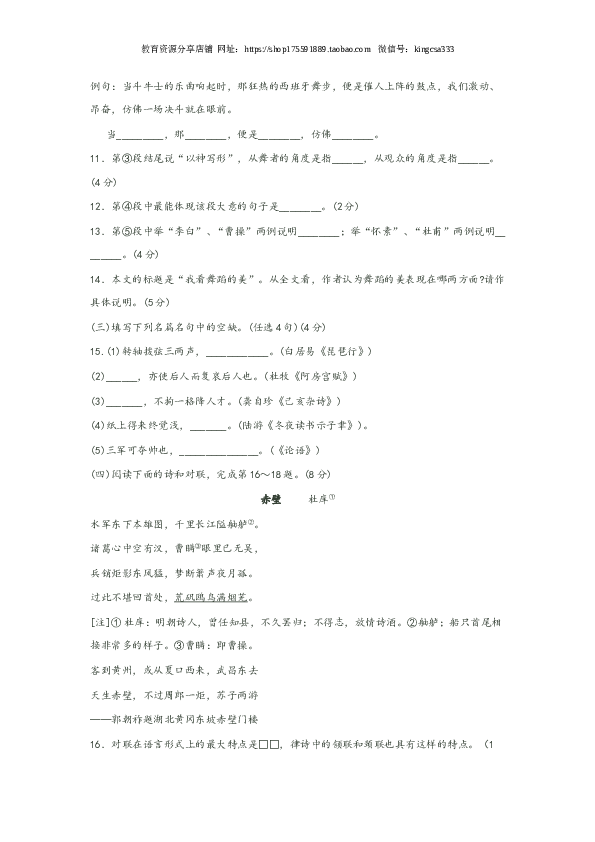 教育资源分享店铺 网址：https://shop175591889.taobao.com 微信号：kingcsa333
例句：当斗牛士的乐曲响起时，那狂热的西班牙舞步，便是催人上阵的鼓点，我们激动、
昂奋，仿佛一场决斗就在眼前。
当________，那_______，便是_______，仿佛_______。
11．第③段结尾说“以神写形”，从舞者的角度是指______，从观众的角度是指______。
(4分)
12．第④段中最能体现该段大意的句子是________。(2分)
13．第⑤段中举“李白”、“曹操”两例说明________；举“怀素”、“杜甫”两例说明__
______。(4分)
14．本文的标题是“我看舞蹈的美”。从全文看，作者认为舞蹈的美表现在哪两方面?请作
具体说明。(5分)
(三)填写下列名篇名句中的空缺。(任选4句)(4分)
15.(1)转轴拨弦三两声，____________。(白居易《琵琶行》)
(2)______，亦使后人而复哀后人也。(杜牧《阿房宫赋》)
(3)_______，不拘一格降人才。(龚自珍《己亥杂诗》)
(4)纸上得来终觉浅，_______。(陆游《冬夜读书示子聿》)。
(5)三军可夺帅也，_______________。(《论语》)
(四)阅读下面的诗和对联，完成第16～18题。(8分)
赤壁 杜庠①
水军东下本雄图，千里长江隘舳舻②。
诸葛心中空有汉，曹瞒③眼里已无吴，
兵销炬影东风猛，梦断箫声夜月孤。
过此不堪回首处，荒矶鸥鸟满烟芜。
[注]①杜庠：明朝诗人，曾任知县，不久罢归；不得志，放情诗酒。②舳舻；船只首尾相
接非常多的样子。③曹瞒：即曹操。
客到黄州，或从夏口西来，武昌东去
天生赤壁，不过周郎一炬，苏子两游
——郭朝祚题湖北黄冈东坡赤壁门楼
16．对联在语言形式上的最大特点是□□，律诗中的颔联和颈联也具有这样的特点。（1